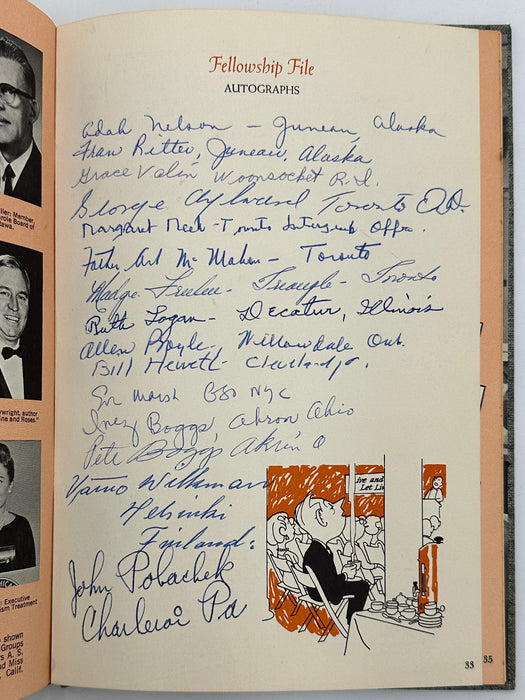 Fellowship File
AUTOGRAPHS
Adah Nelson – Juneau, Alaska
Fran Ritter, Juneau, Alaska
Grace Valin Woonsocket R.I.
George Toronto
Margaret Meek - Toronto Intergroup Office
Father Art McMahon - Toronto
Madge - Triangle - Toronto
Ruth Logan - Decatur, Illinois
Allen Willowdale Ont.
Bill Hewett - Cleveland, O.
Eve Marsh GSO NYC
Inez Boggs, Akron Ohio
Pete Boggs Akron O
Helsinki
Finland:
John Pobachek
Charleroi Pa
ive and
Let Li
33
35
ller: Member,
arole Board of
tawa.
ywright, author
ine and Roses."
: Executive
ism Treatment
shown
Groups
rs A. S.
nd Miss
, Calif.